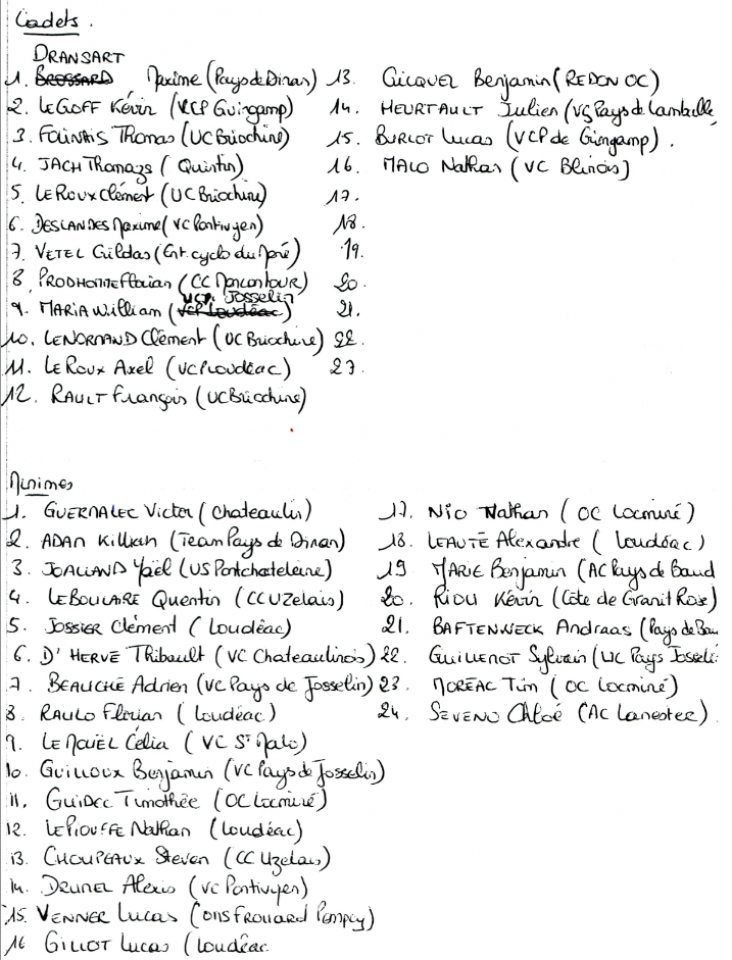 Cadets.
DRANSART
1. BROSSARD Maxime (Pays de Dinan)
2. LE GOFF Kévin (VCP Guingamp)
3. Thomas (UC Briochine)
4. JACH (Quintin)
5. LE ROUX Clément (UC Briochine)
6. DESLANDES Maxime (VC Pontivyen)
7. VETEL Gildas (Ent. cyclo du)
8. PRODHOMME Florian (CC Moncontour)
UCP. JOSSELIN
9. MARIA William (VCP Loudéac)
10. LENORMAND Clément (UC Briochine)
11. LE ROUX Axel (VCP Loudéac)
12. RAULT François (UC Briochine)
13. GICQUEL Benjamin (REDON OC)
14. HEURTAULT Julien (VS Pays de Lamballe,
15. BURLOT Lucas (VCP de Guingamp).
16. MALO Nathan (VC Blinois)
17.
18.
19.
20.
21.
22.
23.
Minimes
1. GUERNALEC Victor (Chateaulin)
2. ADAN Killian (Team Pays de Dinan)
3. JOALLAND Yaël (US Pontchateleine)
4. LE BOULAIRE Quentin (CC UZelais)
5. JOSSIER Clément (Loudéac)
6. D'HERVÉ Thibault (VC Chateaulinois)
7. BEAUCHÉ Adrien (VC Pays de Josselin)
8. RAULO Florian (Loudéac)
9. LE MOUËL Célia (VC St Malo)
10. GUILLOUX Benjamin (VC Pays de Josselin)
11. GUIDEC Timothée (OC Locminé)
12. LE PIOUFFE Nathan (Loudéac)
13. CHOUPEAUX Steven (CC Uzelais)
14. DRUNEL Alexis (VC Pontivyen)
15. VENNER Lucas (Frouard Pompey)
16 GILLOT Lucas (Loudéac
17. NIO Nathan (OC Locminé)
18. LEAUTÉ Alexandre (Loudéac)
19 MARIE Benjamin (AC Pays de Baud
20. RIOU Kévin (Côte de Granit Rose)
21. BAFTENWECK Andraas (Pays de Bau
22. GUILLEMOT Sylvain (UC Pays Josseli
23. MORÉAC Tim (OC Locminé)
24. SEVENO Chloé (AC Lanester).